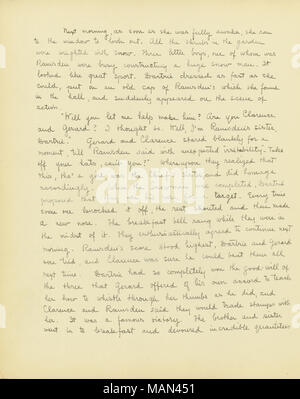 Next morning, as soon as she was fully awake, she ran
to the window to look out. All the shrubs in the garden
were weighted with snow. Three little boys, one of whom was
Ramsden were busy constructing a huge snow man. It
looked like great sport. Beatrix dressed as fast as she
could, put on an old cap of Ramsden's which she found
in the hall, and suddenly appeared on the scene of
action.
"Will you let me help make him? Are you Clarence
and Gerard? I thought so. Well I'm Ramsden's sister,
Gerard and Clarence stared blankly for a
moment till Ramsden said with unexpected irritability, "Take
off your hats, can't you?" Whereupon they realized that
this, the a girl was the sister and did homage
accordingly. completed,
proposed that target. Every time
some one knocked it off, the rest shouted and then made
a new nose. The breakfast bell rang while they were in
the midst of it. They enthusiastically agreed to continue next
morning. Ramsden's score stood highest, and Gerard
were tied and Clarence was sure he could beat them all
next time. had so completely won the good will of
the three that Gerard offered of his own accord to teach
her how to whistle through her thumbs as he did, and
Clarence and Ramsden said they would trade stamps with
her. It was a famous victory. The brother and sister
went in to breakfast and devoured incredible quantities
alamy
Image ID: MAN451
www.alamy.com